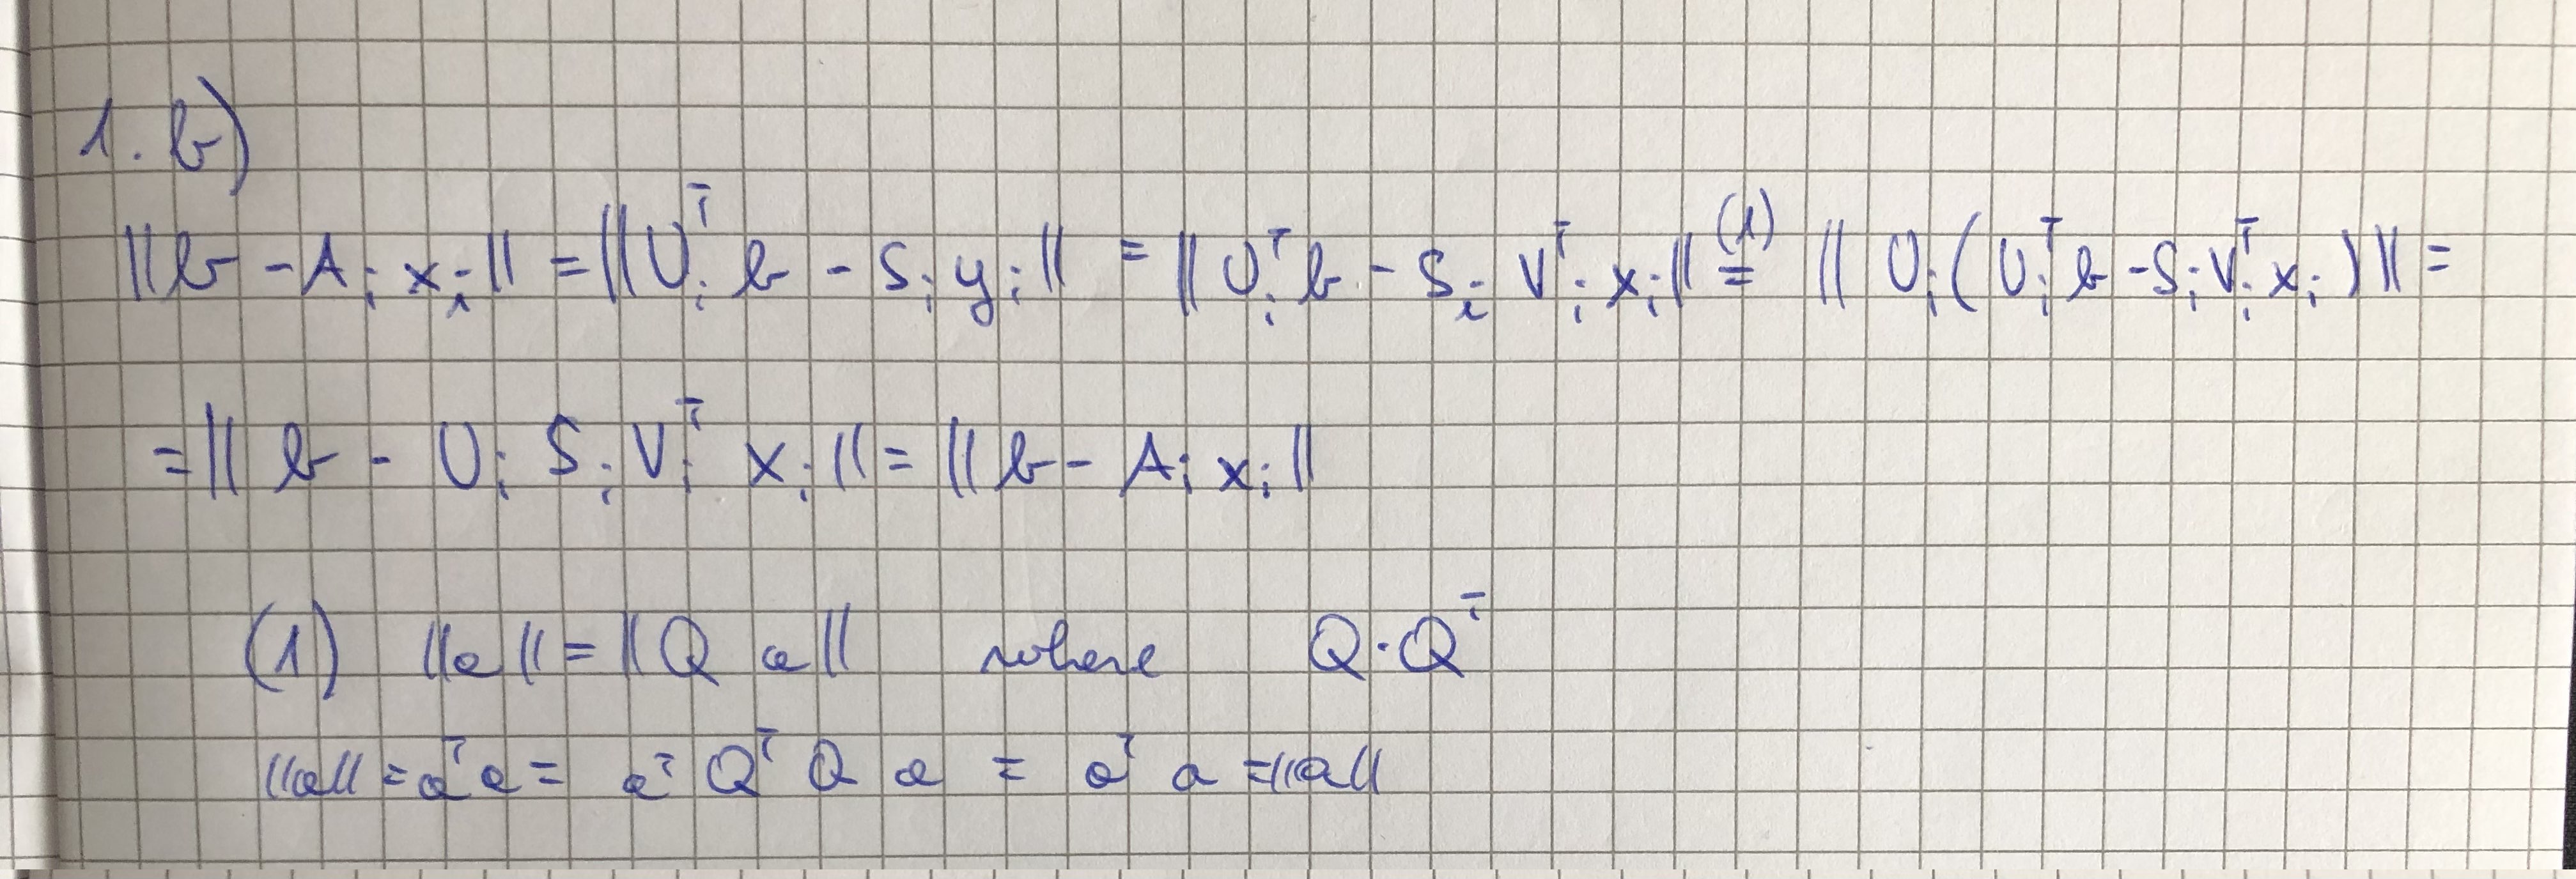 1. b)
||b - A_i x_i|| = ||U_i^T b - S_i y_i|| = ||U_i^T b - S_i V_i^T x_i|| (1)= ||U_i(U_i^T b - S_i V_i^T x_i)|| =
= ||b - U_i S_i V_i^T x_i|| = ||b - A_i x_i||
(1) ||a|| = ||Q a|| where Q·Q^T
||a|| = a^T a = a^T Q^T Q a = a^T a = ||a||